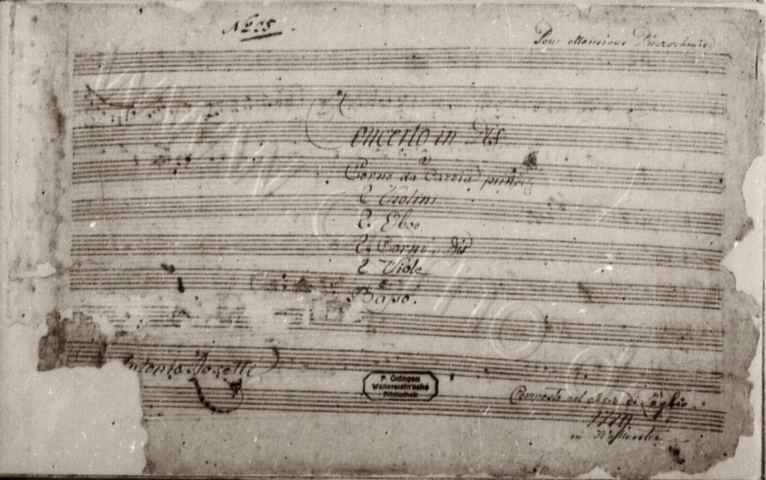 No 205.
Pour Monsieur
Concerto in Dis
Corno da Caccia
2 Violini
2. Oboe.
2. Corni. Dis
2 Viole
e
Basso.
Antonio Rosetti
F. Öttingen
Wallerstein'sche
Bibliothek
Composto nel mese di
1779
in Wallerstein